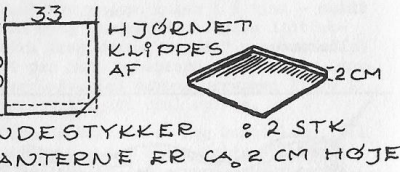 33
HJØRNET
KLIPPES
AF
2 CM
NDESTYKKER : 2 STK
ANTERNE ER CA. 2 CM HØJE